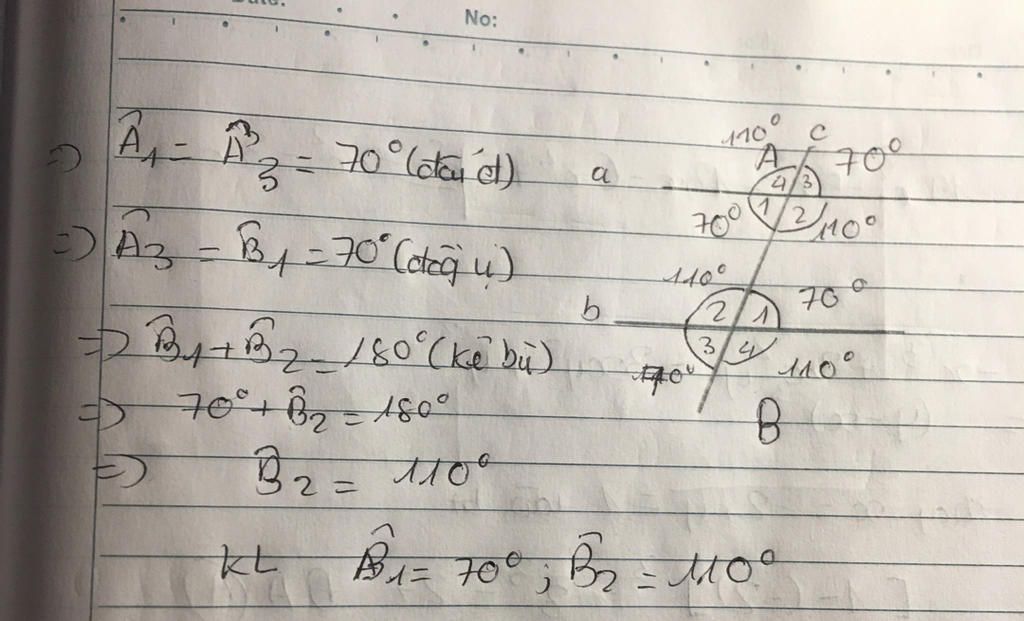 No:
=) Â1 = Â3 = 70° (đối đ)
=) Â3 = B̂1 = 70° (đồg vị)
=) B̂1 + B̂2 = 180° (kề bù)
=) 70° + B̂2 = 180°
=) B̂2 = 110°
KL B̂1 = 70° ; B̂2 = 110°
110° c
A 70°
a 4 3
70° 1 2 110°
110° 70°
b 2 1
3 4 110°
B